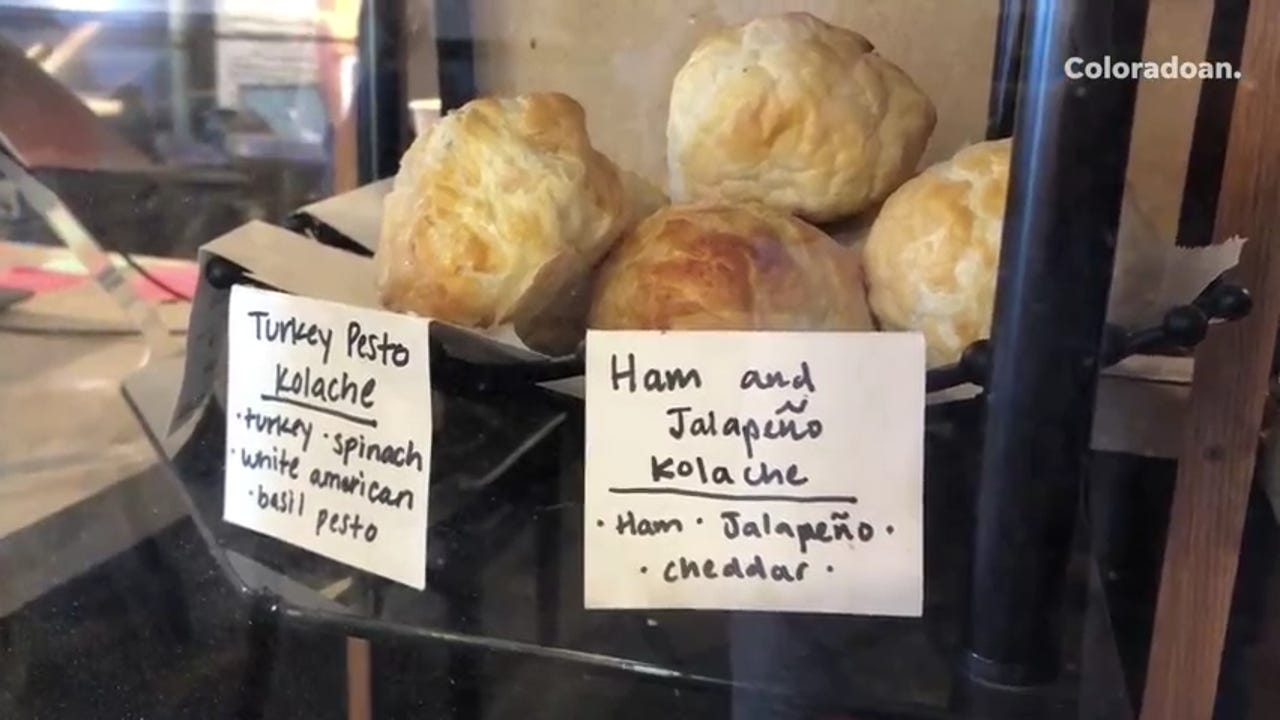 Coloradoan.
Turkey Pesto
Kolache
·turkey ·spinach
·white american
·basil pesto
Ham and
Jalapeño
Kolache
·Ham· Jalapeño·
·cheddar·